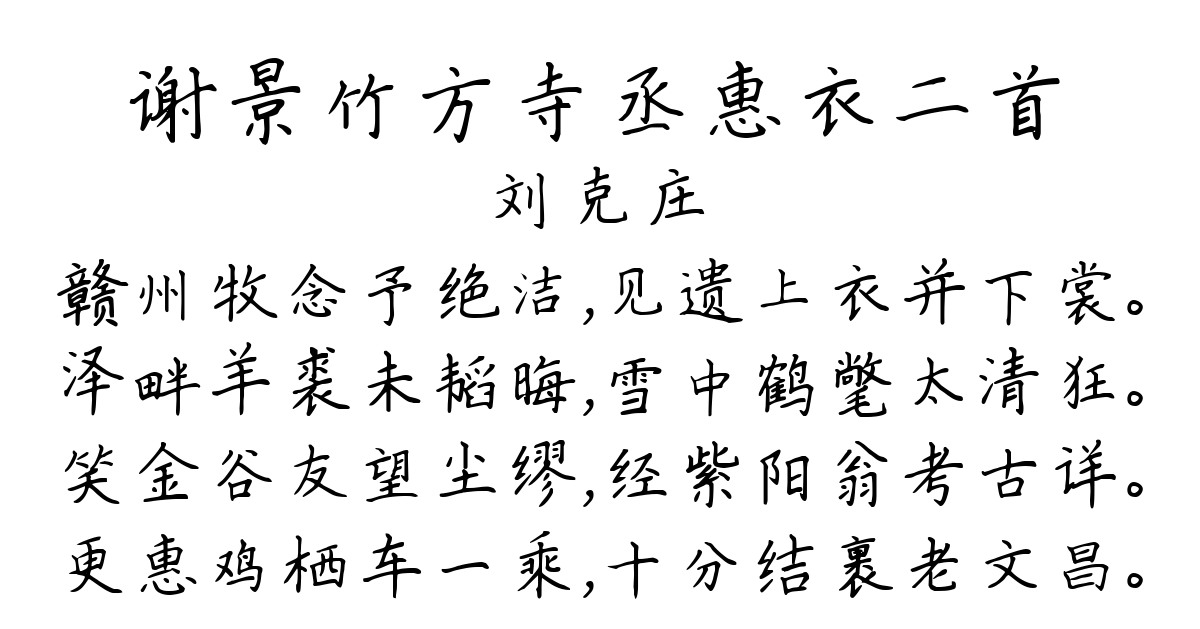 谢景竹方寺丞惠衣二首
刘克庄
赣州牧念予绝洁,见遗上衣并下裳。
泽畔羊裘未韬晦,雪中鹤氅太清狂。
笑金谷友望尘缪,经紫阳翁考古详。
更惠鸡栖车一乘,十分结裹老文昌。